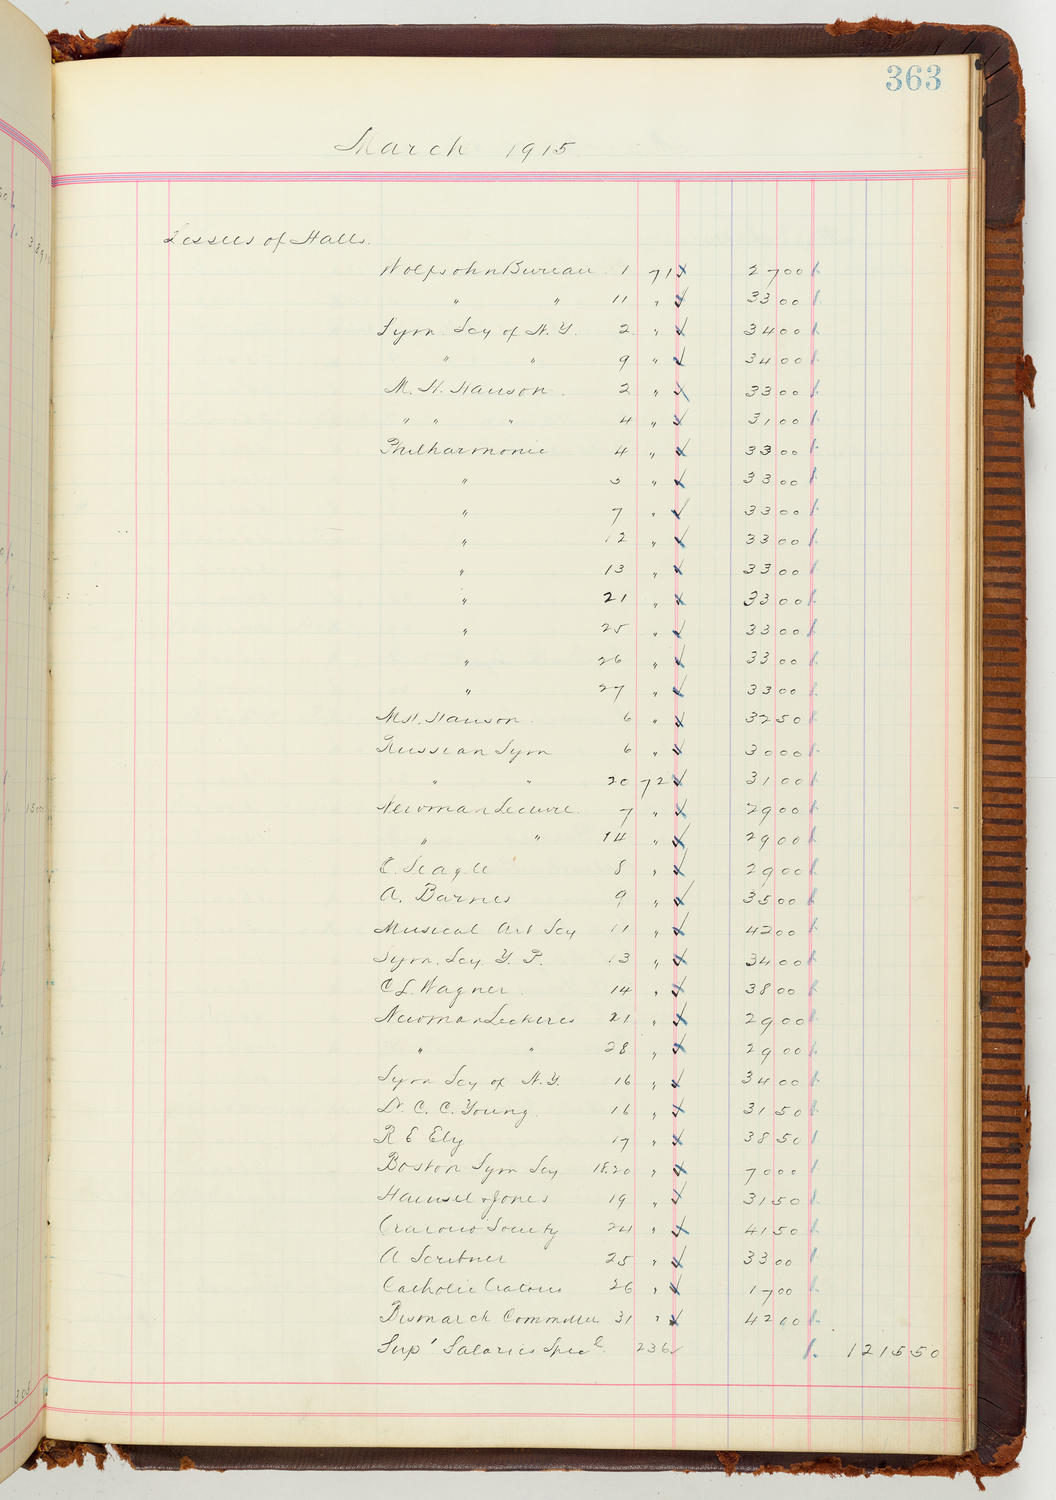 363
March 1915
Lessees of Halls.
Wolfsohn Bureau 1 71 2700
" " 11 " 3300
Sym. Socy of N.Y. 2 " 3400
" " 9 " 3400
M. H. Hanson. 2 " 3300
" " " 4 " 3100
Philharmonic 4 " 3300
" 5 " 3300
" 7 " 3300
" 12 " 3300
" 13 " 3300
" 21 " 3300
" 25 " 3300
" 26 " 3300
" 27 " 3300
M.H. Hanson. 6 " 3250
Russian Sym 6 " 3000
" " 20 72 3100
Newman Lecture. 7 " 2900
" " 14 " 2900
O. Seagle 8 " 2900
A. Barnes 9 " 3500
Musical Art Socy 11 " 4200
Sym. Socy. Y. P. 13 " 3400
C L. Wagner. 14 " 3800
Newman Lectures 21 " 2900
" " 28 " 2900
Sym Socy of N.Y. 16 " 3400
Dr. C. C. Young. 16 " 3150
R E Ely 17 " 3850
Boston Sym Socy 18.20 " 7000
Haensel & Jones 19 " 3150
Oratorio Society 24 " 4150
A Scribner 25 " 3300
Catholic Oratorio 26 " 1700
Bismarck Committee 31 " 4200
Sup' Salaries Specl. 236 121550